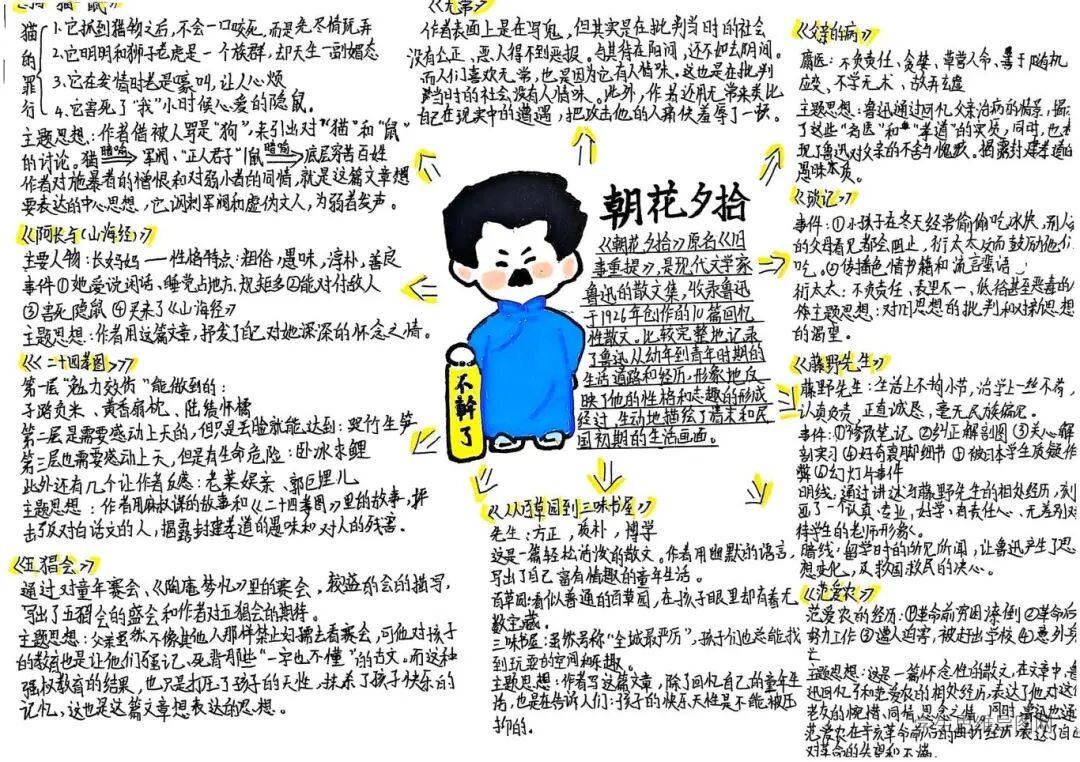 《狗·猫·鼠》
猫的罪行
1.它抓到猎物之后，不会一口咬死，而是先尽情玩弄
2.它明明和狮子老虎是一个族群，却天生一副媚态
3.它在发情时老是嚎叫，让人心烦
4.它害死了“我”小时候心爱的隐鼠。
主题思想：作者借被人骂是“狗”，来引出对“猫”和“鼠”
的讨论。猫 暗喻 军阀、“正人君子”|鼠 暗喻 底层穷苦百姓
作者对施暴者的憎恨和对弱小者的同情，就是这篇文章想
要表达的中心思想，它讽刺军阀和虚伪文人，为弱者发声。
《阿长与《山海经》》
主要人物：长妈妈——性格特点：粗俗，愚昧，淳朴，善良
事件①她爱说闲话、睡觉占地方、规矩多②能对付敌人
③害死隐鼠 ④买来了《山海经》
主题思想：作者用这篇文章，抒发了自己对她深深的怀念之情。
《二十四孝图》
第一层“勉力效仿”能做到的：
子路负米、黄香扇枕、陆绩怀橘
第二层是需要感动上天的，但只是丢脸就能达到：哭竹生笋
第三层也需要感动上天，但是有生命危险：卧冰求鲤
此外还有几个让作者反感：老莱娱亲、郭巨埋儿
主题思想：作者用麻叔谋的故事和《二十四孝图》里的故事，抨
击了反对白话文的人，揭露封建孝道的愚昧和对人的残害。
《五猖会》
通过对童年赛会、《陶庵梦忆》里的赛会、较盛的会的描写，
写出了五猖会的盛会和作者对五猖会的期待。
主题思想：父亲虽然不像其他人那样禁止妇孺去看赛会，可他对孩子
的教育也是让他们强记、死背那些“一字也不懂”的古文。而这种
强权教育的结果，也只是打压了孩子的天性，抹杀了孩子快乐的
记忆，这也是这篇文章想表达的思想。
《无常》
作者表面上是在写鬼，但其实是在批判当时的社会
没有公正、恶人得不到恶报。与其待在阳间，还不如去阴间。
而人们喜欢无常，也是因为它有人情味。这也是在批判
当时的社会没有人情味。此外，作者还用无常来类比
自己在现实中的遭遇，把攻击他的人痛快羞辱了一顿。
朝花夕拾
《朝花夕拾》原名《旧
事重提》，是现代文学家
鲁迅的散文集，收录鲁迅
于1926年创作的10篇回忆
性散文。比较完整地记录
了鲁迅从幼年到青年时期的
生活道路和经历，形象地反
映了他的性格和志趣的形成
经过，生动地描绘了清末和民
国初期的生活画面。
不幹了
《从百草园到三味书屋》
先生：方正，质朴，博学
这是一篇轻松活泼的散文。作者用幽默的语言，
写出了自己富有情趣的童年生活。
百草园：看似普通的百草园，在孩子眼里却有着无
数宝藏。
三味书屋：虽然号称“全城最严厉”，孩子们也总能找
到玩耍的空间和乐趣。
主题思想：作者写这篇文章，除了回忆自己的童年生
活，也是在告诉人们：孩子的快乐天性是不能被压
抑的。
《父亲的病》
庸医：不负责任、贪婪、草菅人命、善于随机
应变、不学无术、故弄玄虚
主题思想：鲁迅通过回忆父亲治病的情景，揭
了这些“名医”和“孝道”的实质，同时，也表
现了鲁迅对父亲的不舍与愧歉。揭露封建孝道的
愚昧本质。
《琐记》
事件：①小孩子在冬天经常偷偷吃冰块，别人
的父母看见都会阻止，衍太太反而鼓励他们
吃。②传播色情书籍和流言蜚语
衍太太：不负责任、表里不一、低俗甚至恶毒的
主题思想：对旧思想的批判和对新思想
的渴望。
《藤野先生》
藤野先生：生活上不拘小节，治学上一丝不苟，
认真负责 正直诚恳，毫无民族偏见。
事件：①修改笔记 ②纠正解剖图 ③关心解
剖实习 ④好奇裹脚细节 ①被日本学生质疑作
弊 ②幻灯片事件
明线：通过讲述与藤野先生的相处经历，刻
画了一个认真、专业、好学、有责任心、无差别对
待学生的老师形象。
暗线：留学时的所见所闻，让鲁迅产生了思
想变化，及救国救民的决心。
《范爱农》
范爱农的经历：①革命前穷困潦倒 ②革命后
努力工作 ③遭人迫害，被赶出学校 ④意外身
亡
主题思想：这是一篇怀念性的散文，在文章中，鲁
迅回忆了和范爱农的相处经历，表达了他对这位
老友的惋惜、同情、思念之情。同时，鲁迅也通
范爱农在辛亥革命前后的曲折经历，表达了自己
对革命的失望和不满。